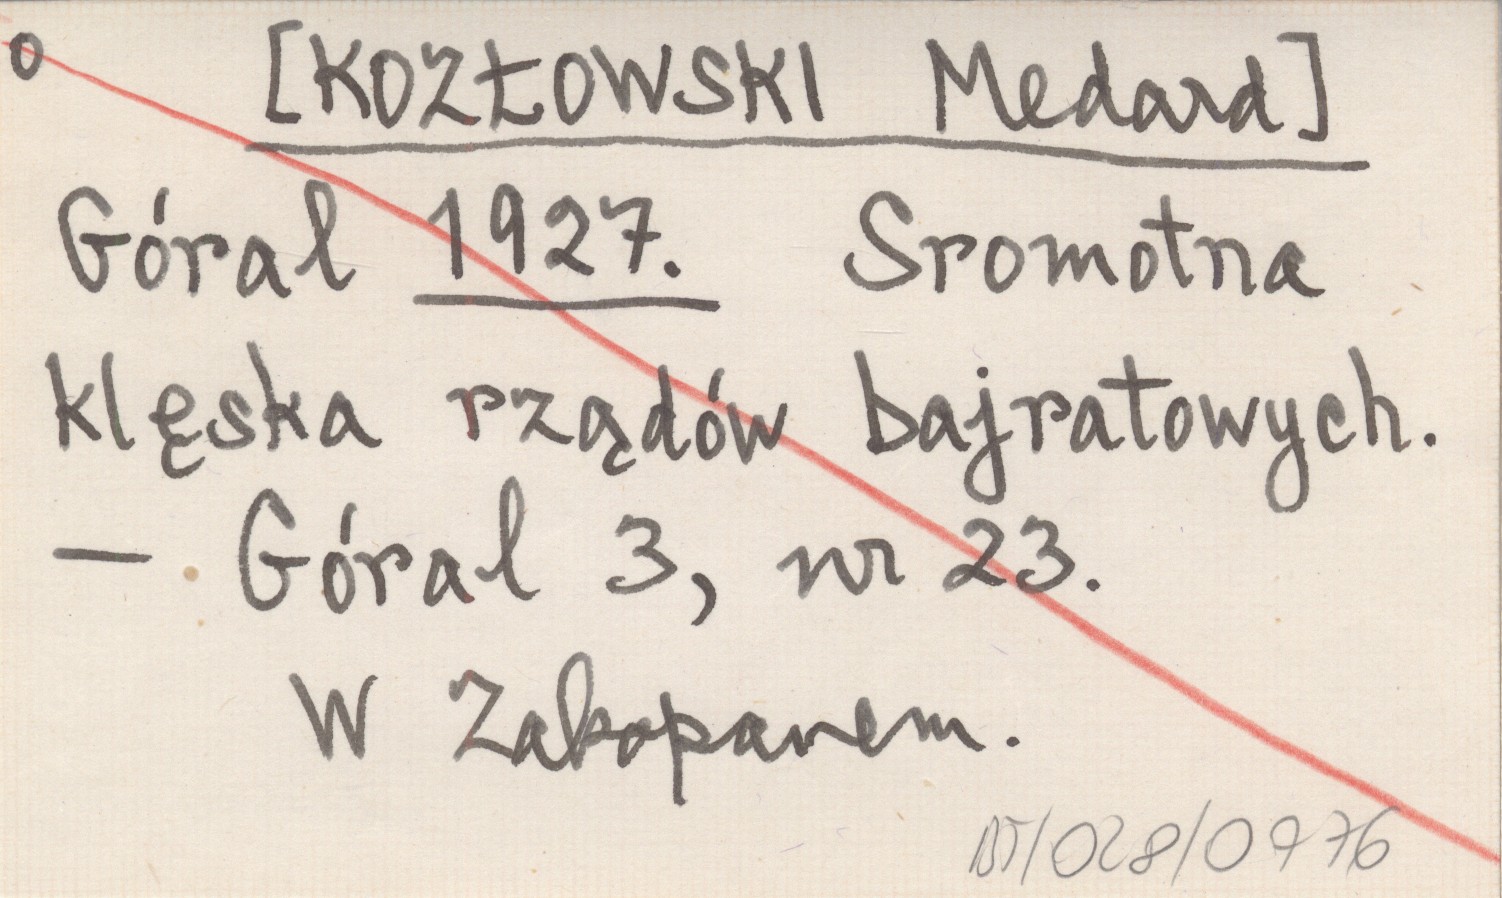 o [KOZŁOWSKI Medard]
Góral 1927. Sromotna
klęska rządów bajratowych.
— Góral 3, nr 23.
W Zakopanem.
BJ/028/0976